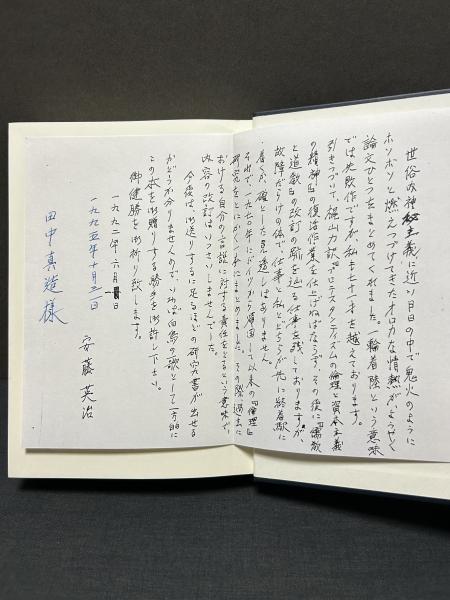 世俗内神秘主義に近い日日の中で鬼火のように
ホソボソと燃えつづけてきたオロカな情熱がようやく
論文ひとつをまとめてくれました。一輪着陸という意味
では失敗作ですが、私も七十一才を越えております。
引きつづいて梶山力訳『プロテスタンティズムの倫理と資本主義
の精神』の復活作業を仕上げねばならず、その後に『儒教
と道教』の改訂の跡を辿る仕事を残しておりますが、
故障だらけの体で、仕事と私とどちらが先に終着駅に
着くか、確とした見透しはありません。
それで、一九七〇年にドイツから帰国して以来の『倫理』
研究をとにかく一本にまとめました。その際過去に
おける自分の言説に対する責任をとるという意味で
内容の改訂はいっさいしませんでした。
今後は、御送りするに足るほどの研究書が出せる
かどうか分りませんので、いわば白鳥の歌として一方的に
この本を御贈りする勝手を御許し下さい。
御健勝を御祈り致します。
一九九二年六月 日
一九九五年十月二日
安藤英治
田中真造様